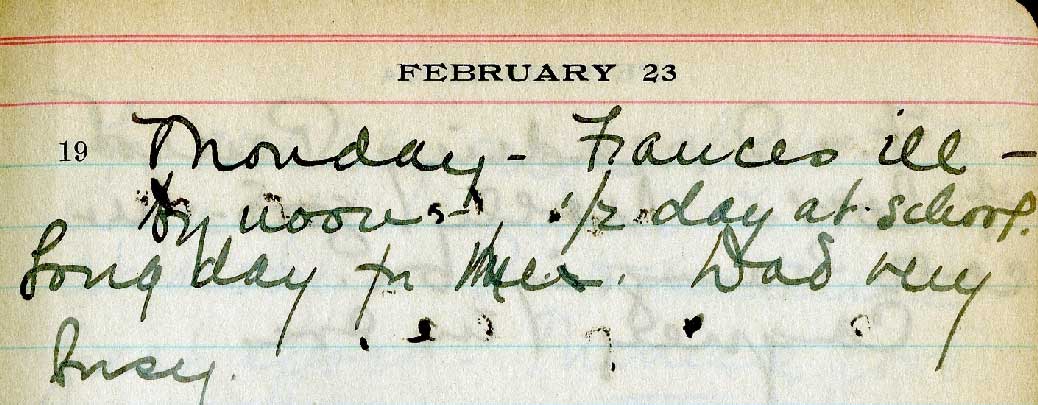 FEBRUARY 23
19 Monday - Frances ill -
By noon - 1/2 day at school.
Long day for her. Dad very
busy.